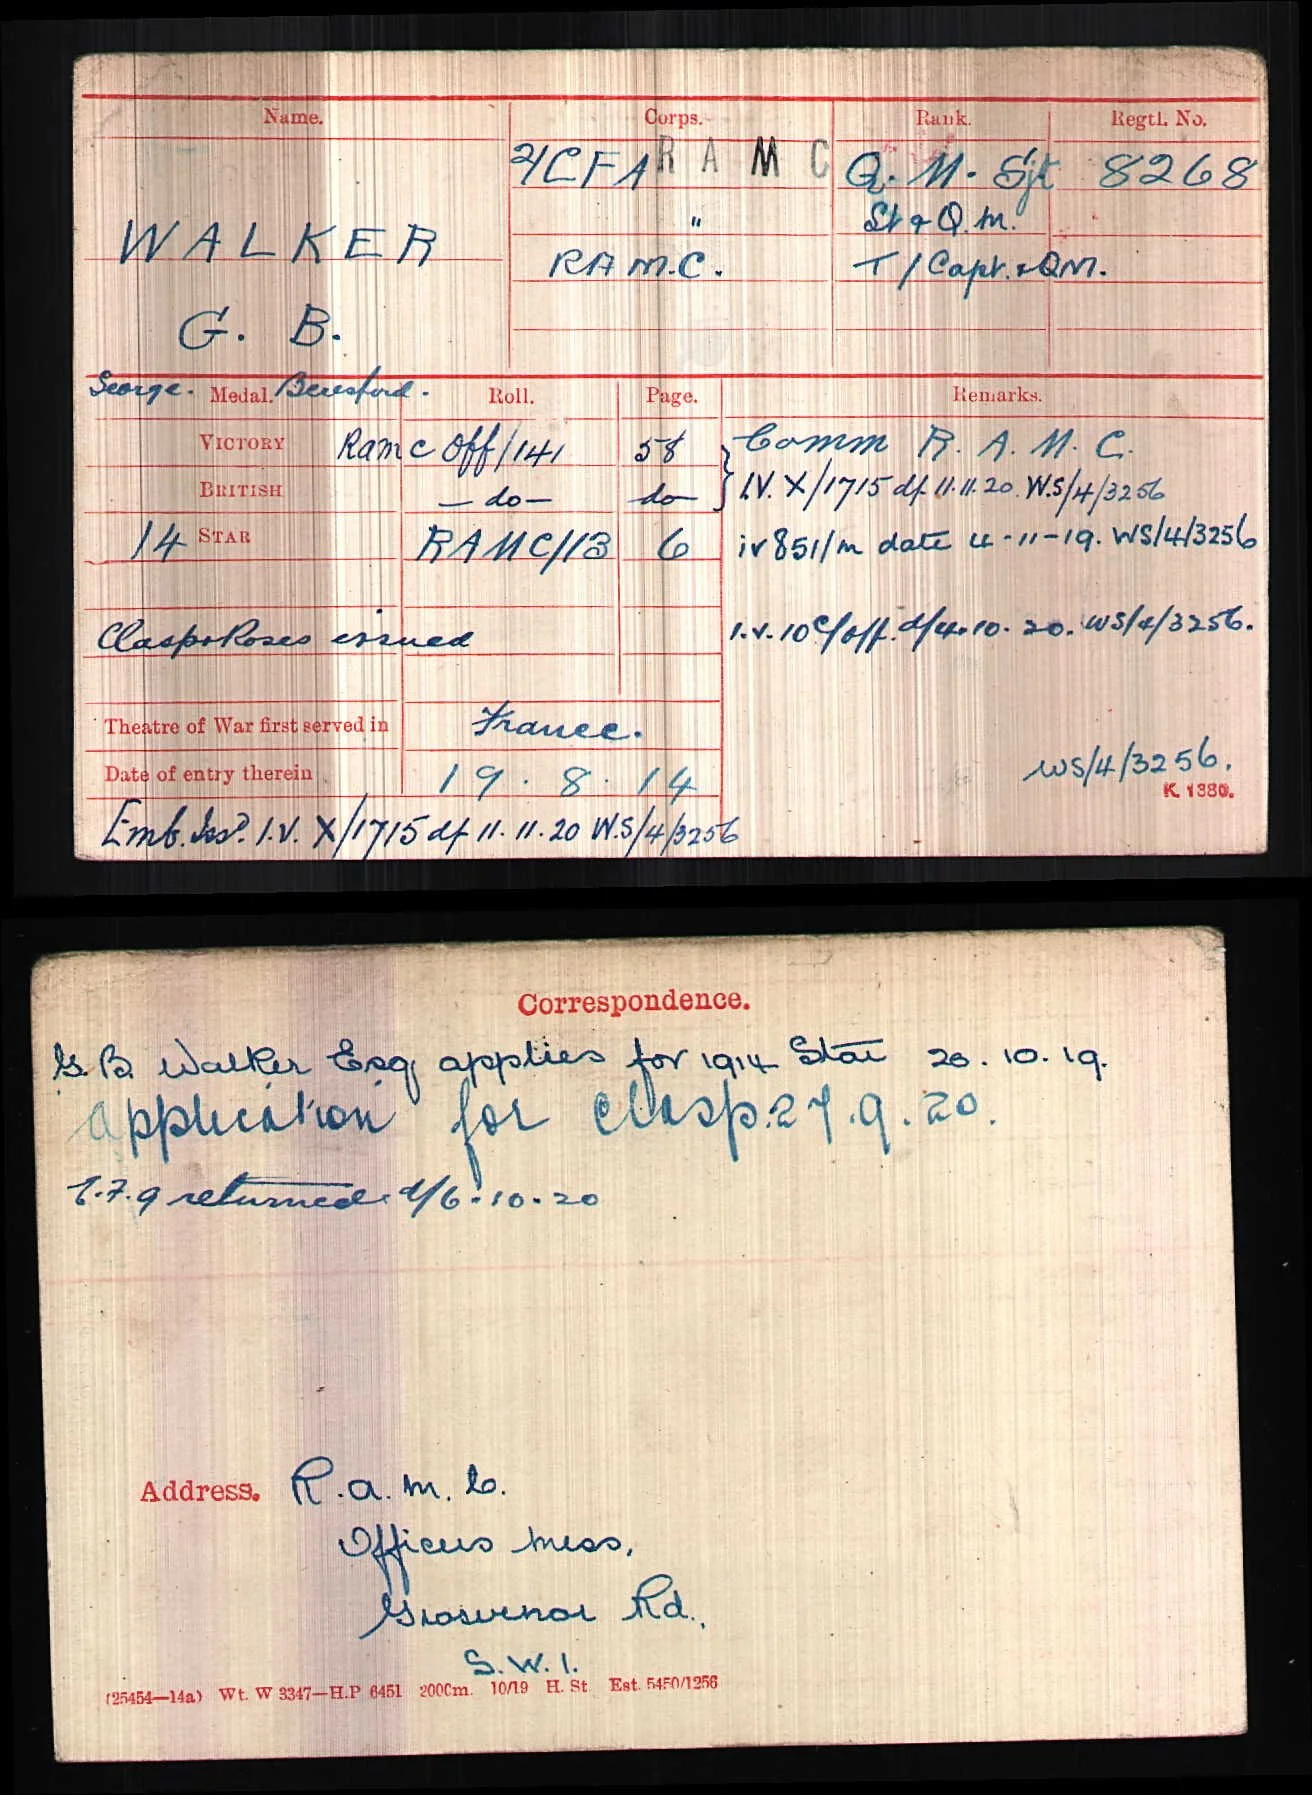 Name. Corps. Rank. Regtl. No.
4CFA R A M C Q. M. Sjt 8268
" Lt & Q.M.
WALKER RAM.C. T/Capt. & QM.
G. B.
George. Beresford.
Medal. Roll. Page. Remarks.
VICTORY Ramc Off/141 58 Comm R. A. M. C.
BRITISH — do — do I.V. X/1715 df 11.11.20. W.S/4/3256
14 STAR RAMC/13 6 iv 851/m date 4-11-19. WS/4/3256
Clasp & Roses issued I.V. 10c/off. d/4.10.20. WS/4/3256.
Theatre of War first served in France.
Date of entry therein 19.8.14
WS/4/3256.
K. 1380.
Emb. Issd. I.V. X/1715 df 11.11.20 W.S/4/3256
Correspondence.
G.B. Walker Esq applies for 1914 Star 28.10.19.
Application for Clasp. 27.9.20.
returned d/6.10.20
Address. R.A.M.C.
Officers Mess,
Grosvenor Rd.,
S.W.1.
(25454—14a) Wt. W 3347—H.P 6451 2000m. 10/19 H. St Est. 5450/1256